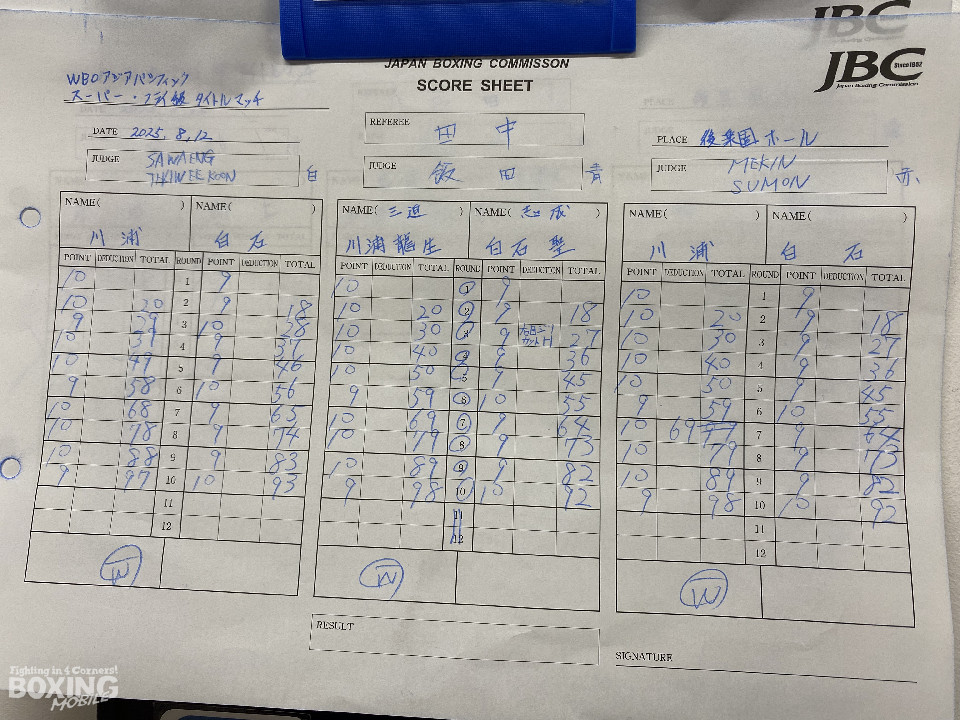 JBC
JAPAN BOXING COMMISSON
SCORE SHEET
JBC Since1952
Japan Boxing Commission
WBOアジアパシフィック
スーパー・フライ級 タイトルマッチ
DATE 2025. 8. 12
REFEREE 田 中
PLACE 後楽園ホール
JUDGE SAWAENG
TAWEEKOON 白
JUDGE 飯 田 青
JUDGE MEKIN
SUMON 赤
NAME( ) NAME( )
川 浦 白 石
POINT DEDUCTION TOTAL ROUND POINT DEDUCTION TOTAL
10 1 9
10 20 2 9 18
9 29 3 10 28
10 39 4 9 37
10 49 5 9 46
9 58 6 10 56
10 68 7 9 65
10 78 8 9 74
10 88 9 9 83
9 97 10 10 93
11
12
W
NAME( 三迫 ) NAME( 志成 )
川浦龍生 白石 聖
POINT DEDUCTION TOTAL ROUND POINT DEDUCTION TOTAL
10 1 9
10 20 2 9 18
10 30 3 9 27
10 40 4 9 36
10 50 5 9 45
9 59 6 10 55
10 69 7 9 64
10 79 8 9 73
10 89 9 9 82
9 98 10 10 92
11
12
W
NAME( ) NAME( )
川 浦 白 石
POINT DEDUCTION TOTAL ROUND POINT DEDUCTION TOTAL
10 1 9
10 20 2 9 18
10 30 3 9 27
10 40 4 9 36
10 50 5 9 45
9 59 6 10 55
10 69 7 9 64
10 79 8 9 73
10 89 9 9 82
9 98 10 10 92
11
12
W
RESULT
SIGNATURE
Fighting in 4 Corners!
BOXING
MOBILE